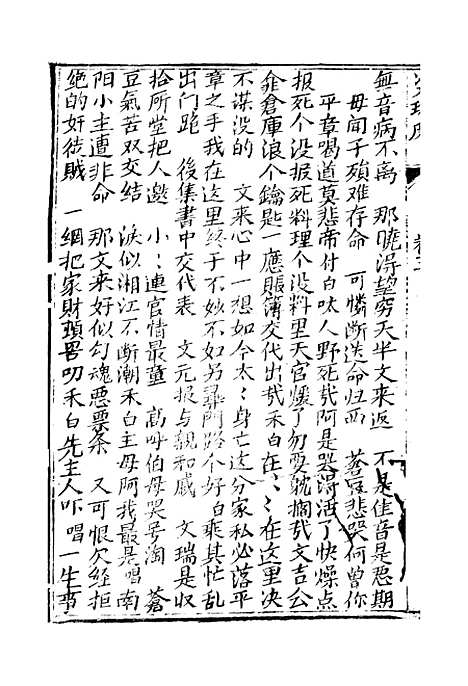 無音病不离　那曉淂望穷天半文来返　不是佳音是悪期
毋闻子殞难存命　可憐断送命归西　蒼冥悲哭何曾你
平章喝道莫悲啼付白呔人野死㢤阿是哭淂活了快燥点
报死个没报死料理个没料里天官爆了勿要躭搁㢤文吉公
倉庫浪个鑰匙一應賬簿交代出㢤禾白在〻在这里决
不谋没的　文来心中一想如今太〻身亡这分家私必落平
章之手我在这里终于不妙不如另尋門路个好白乘其忙乱
出门跑　後集書中交代表　文元报与親和戚　文瑞是収
拾所堂把人邀　小〻連官情最　高呼伯母哭号淘　蒼
豆氣苦双交结　淚似湘江不断潮禾白主母阿我最是唱南
阳小主遭非命　那文来好似勾魂悪票条　又可恨欠经拒
绝的奸徒賊　一網把家財頭叨禾白先主人吓唱一生事